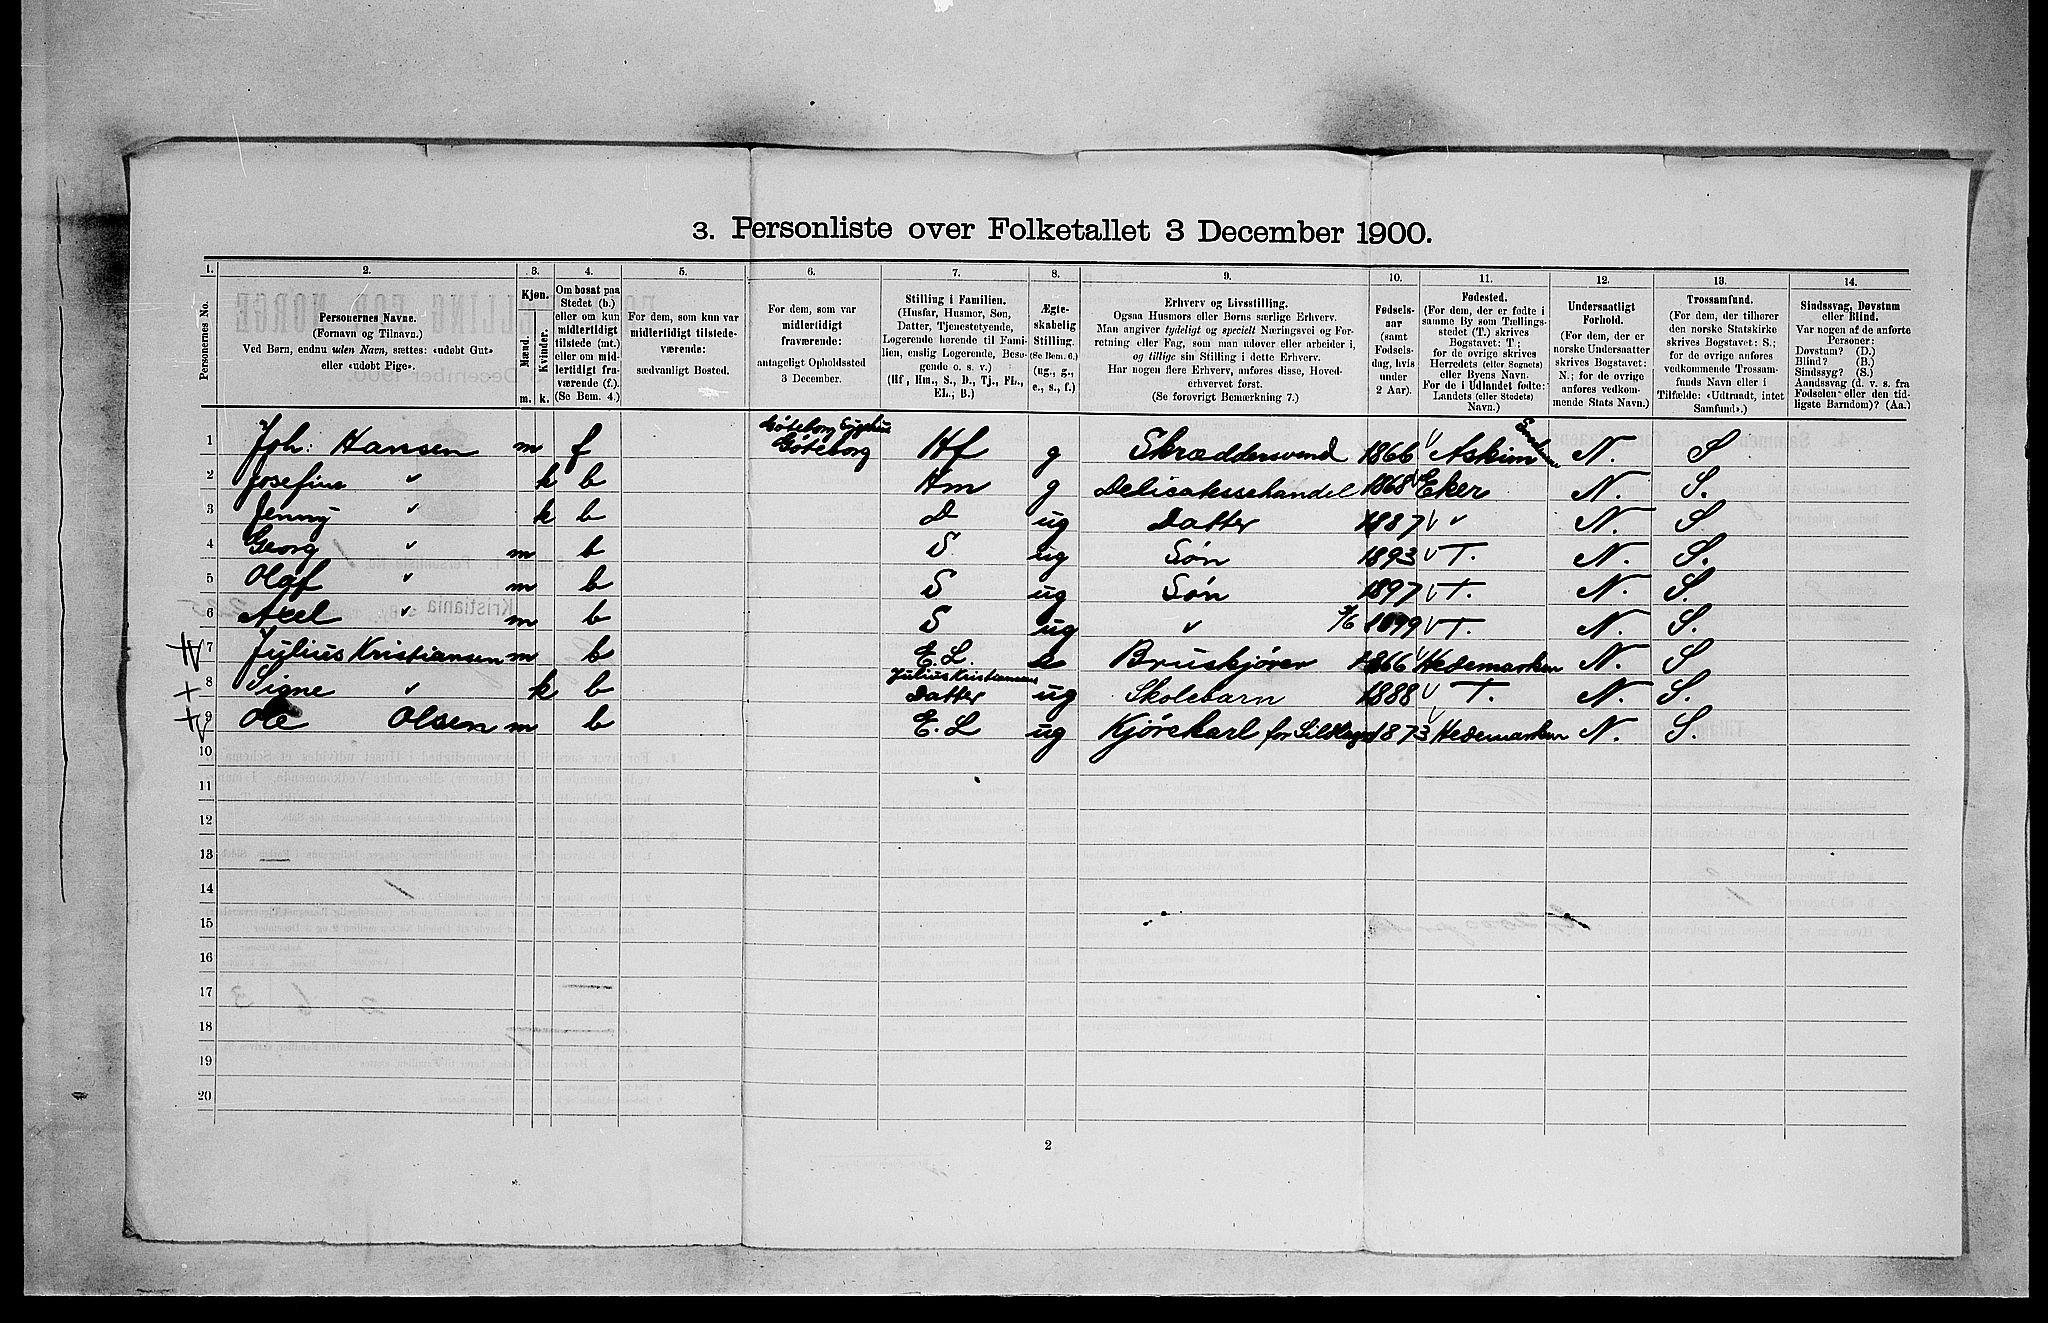 3. Personliste over Folketallet 3 December 1900.
1. 2. 3. 4. 5. 6. 7. 8. 9. 10. 11. 12. 13. 14.
Personernes No.
Personernes Navne.
(Fornavn og Tilnavn.)
Ved Børn, endnu uden Navn, sættes: «udøbt Gut»
eller «udøbt Pige».
Kjøn.
Mænd. Kvinder.
m. k.
Om bosat paa
Stedet (b.)
eller om kun
midlertidigt
tilstede (mt.)
eller om mid-
lertidigt fra-
værende (f.).
(Se Bem. 4.)
For dem, som kun var
midlertidigt tilstede-
værende:
sædvanligt Bosted.
For dem, som var
midlertidigt
fraværende:
antageligt Opholdssted
3 December.
Stilling i Familien.
(Husfar, Husmor, Søn,
Datter, Tjenestetyende,
Logerende hørende til Fami-
lien, enslig Logerende, Besø-
gende o. s. v.)
(Hf, Hm., S., D., Tj., FL.,
EL., B.)
Ægte-
skabelig
Stilling.
(Se Bem. 6.)
(ug., g.,
e., s., f.)
Erhverv og Livsstilling.
Ogsaa Husmors eller Børns særlige Erhverv.
Man angiver tydeligt og specielt Næringsvei og For-
retning eller Fag, som man udøver eller arbeider i,
og tillige sin Stilling i dette Erhverv.
Har nogen flere Erhverv, anføres disse, Hoved-
erhvervet først.
(Se forøvrigt Bemærkning 7.)
Fødsels-
aar
(samt
Fødsels-
dag, hvis
under
2 Aar).
Fødested.
(For dem, der er fødte i
samme By som Tællings-
stedet (T.) skrives
Bogstavet: T;
for de øvrige skrives
Herredets (eller Sognets)
eller Byens Navn.
For de i Udlandet fødte:
Landets (eller Stedets)
Navn.)
Undersaatligt
Forhold.
(For dem, der er
norske Undersaatter
skrives Bogstavet:
N.; for de øvrige
anføres vedkom-
mende Stats Navn.)
Trossamfund.
(For dem, der tilhører
den norske Statskirke
skrives Bogstavet: S.;
for de øvrige anføres
vedkommende Trossam-
funds Navn eller i
Tilfælde: «Udtraadt, intet
Samfund».)
Sindssvag, Døvstum
eller Blind.
Var nogen af de anførte
Personer:
Døvstum? (D.)
Blind? (B.)
Sindssyg? (S.)
Aandssvag (d. v. s. fra
Fødselen eller den tid-
ligste Barndom)? (Aa.)
1 Joh: Hansen m f Göteborg Göteborg Hf g Skræddersvend 1866 Askim N. S
2 Josefine " k b Hm g Delicatessehandel 1868 Eker N. S.
3 Jenny " k b D ug Datter 1887 " N. S
4 Georg " m b S. ug Søn 1893 T. N. S.
5 Olaf " m b S ug Søn 1897 T. N. S.
6 Axel " m b S ug " 1899 T. N. S.
7 Julius Kristiansen m b E. L. e Bruskjører 1866 Hedemarken N. S
8 Signe " k b Julius Kristiansens Datter ug Skolebarn 1888 T. N. S.
9 Ole Olsen m b E. L ug Kjørekarl for 1873 Hedemarken N. S.
10
11
12
13
14
15
16
17
18
19
20
2